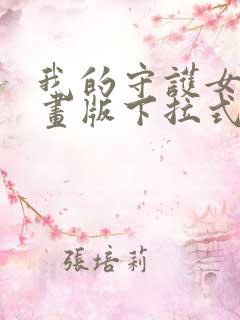 我的守護女
畫版下拉式
張培莉